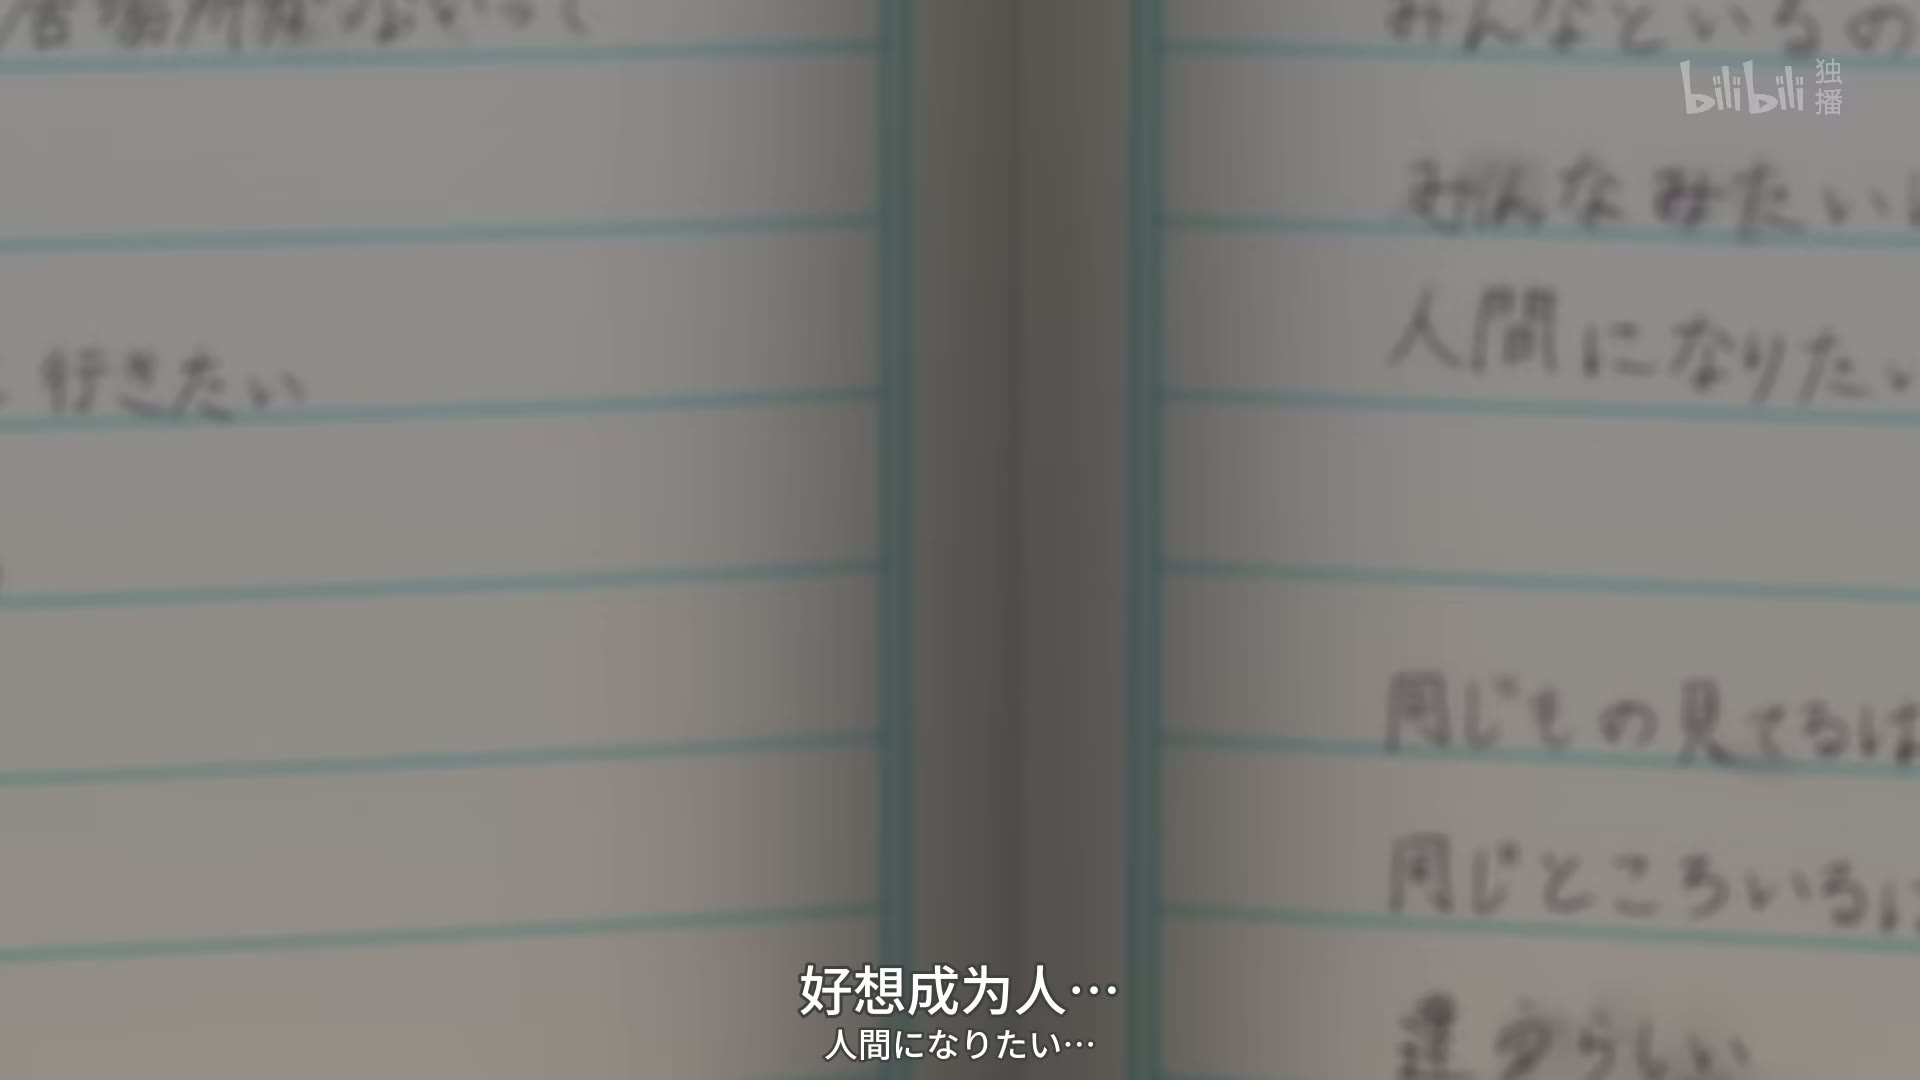 居場所がないって
行きたい
みんなといるの
みんなみたいに
人間になりたい
同じもの見てるは
同じところいるは
違うらしい
bilibili 独播
好想成为人…
人間になりたい…